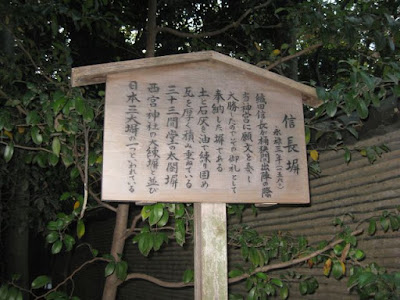 信長塀
永禄三年(一五六〇)
織田信長が桶狭間出陣の際
当神宮に願文を奏し
大勝したのでその御礼として
奉納した塀である
土と石灰を油で練り固め
瓦を厚く積み重ねている
三十三間堂の太閤塀
西宮神社の大練塀と並び
日本三大塀の一つといわれている